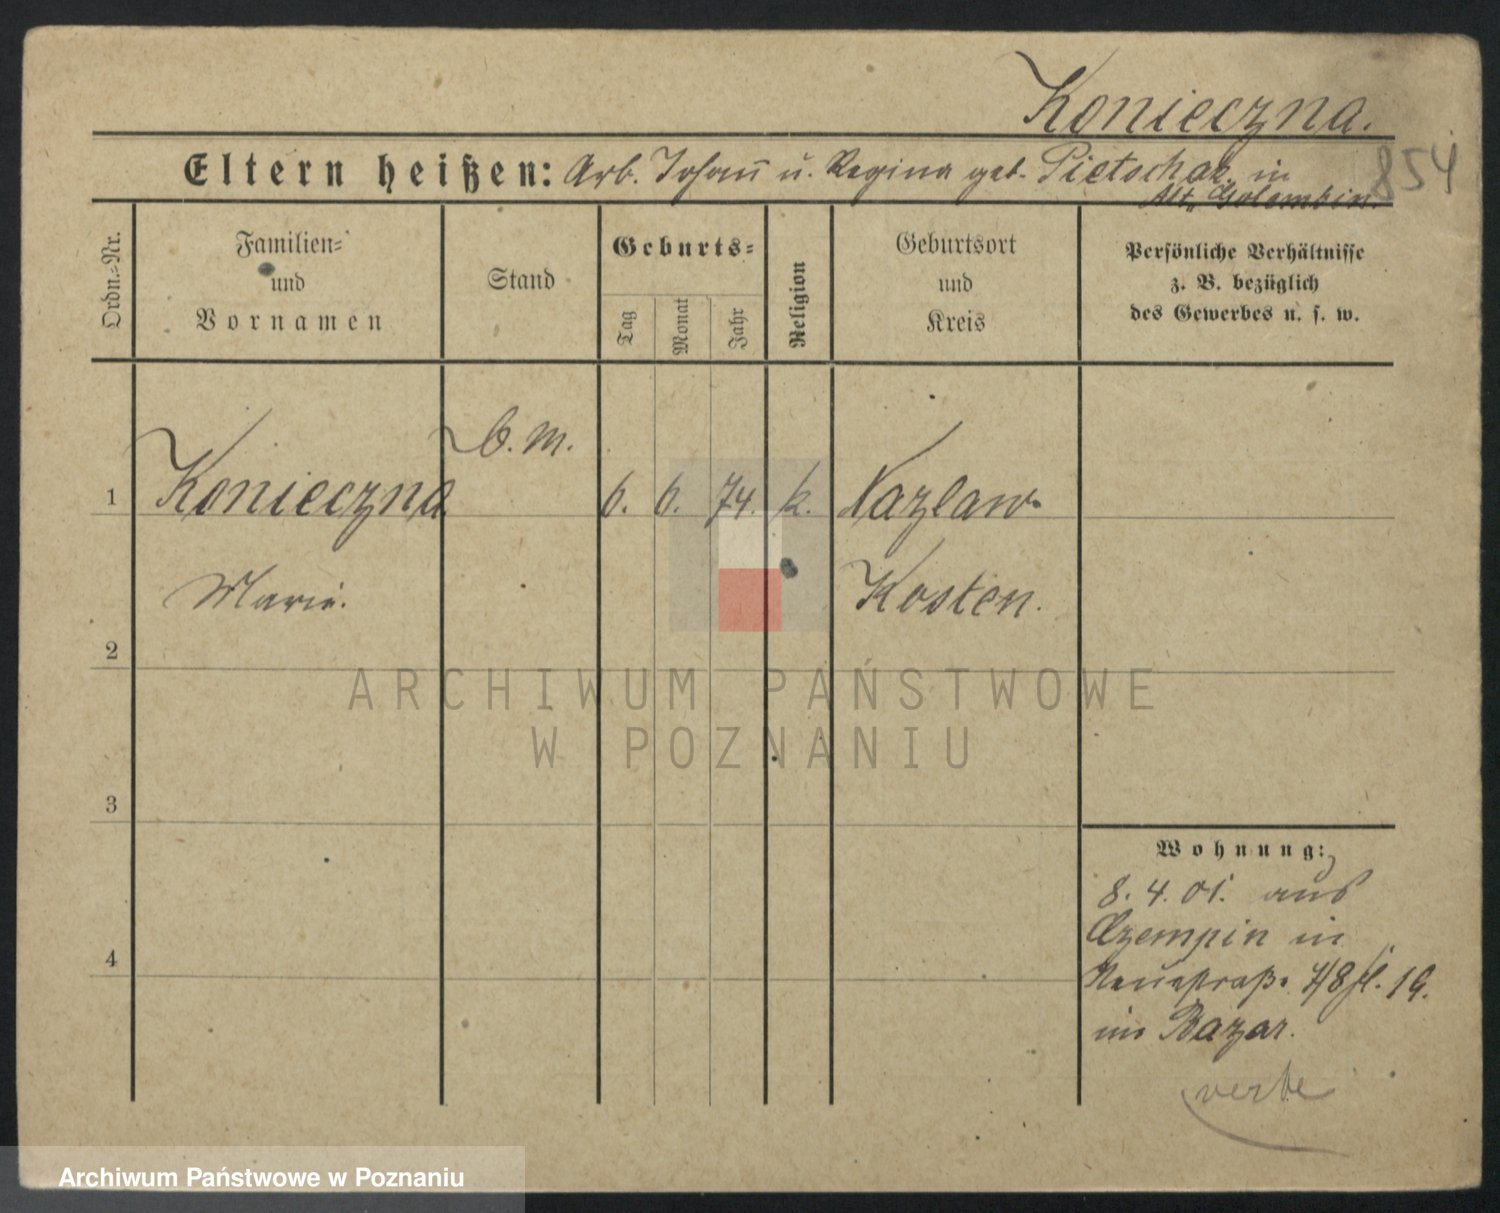 Konieczna.
Eltern heißen: Arb. Johann u. Regina geb. Pietschak in
Alt„ Golembin.
854
Ordn.=Nr.
Familien=
und
Vornamen
Stand
Geburts=
Tag
Monat
Jahr
Religion
Geburtsort
und
Kreis
Persönliche Verhältnisse
z. B. bezüglich
des Gewerbes u. s. w.
1
Konieczna
Marie.
b. m.
6. 6. 74. k.
Nazlaw
Kosten.
2
3
4
Wohnung:
8. 4. 01. aus
Czempin in
Neuestraße 7/8 fl. 19.
im Bazar.
ARCHIWUM PAŃSTWOWE
W POZNANIU
Archiwum Państwowe w Poznaniu